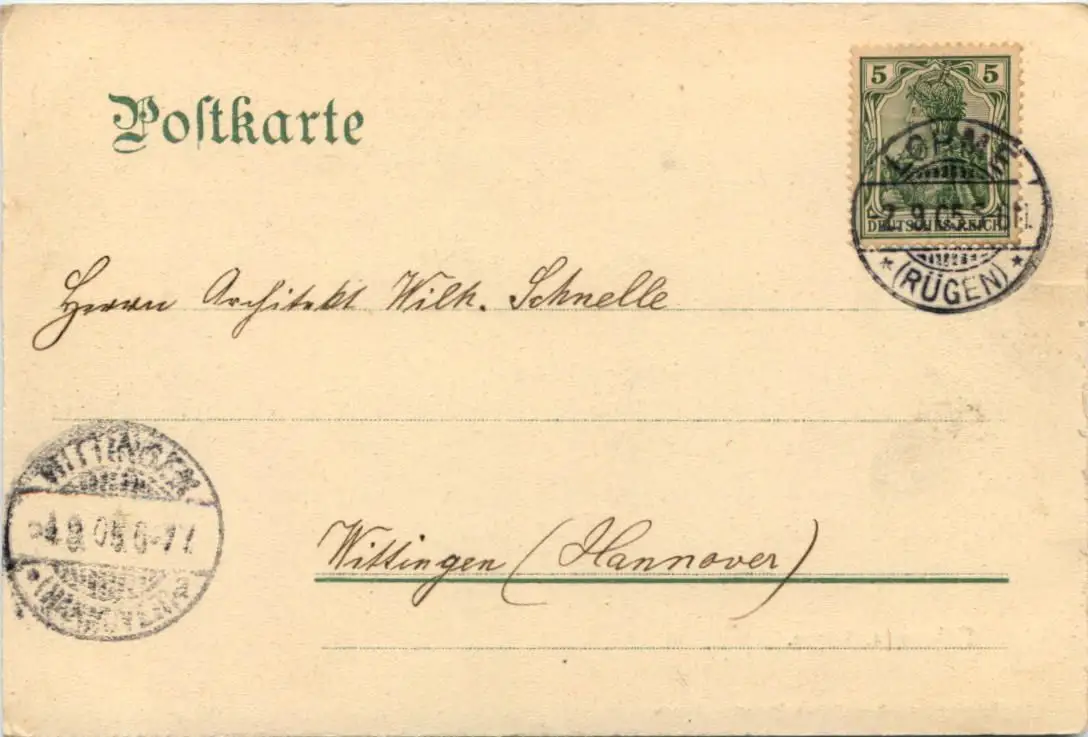 Poſtkarte
5 5
DEUTSCHES REICH
LOHME
2.9.05.
* (RÜGEN) *
Herrn Architekt Wilh. Schnelle
WITTINGEN
4.9.05.6-7
(HANNOVER)
Wittingen (Hannover)